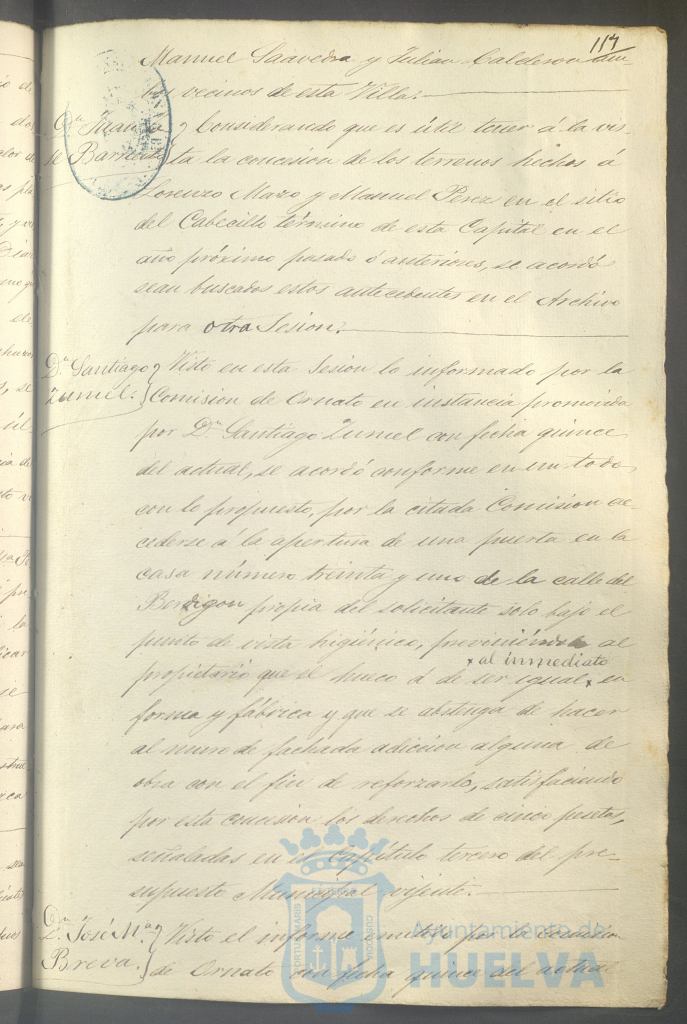 117
Manuel Saavedra y Julian Calderon am-
bos vecinos de esta Villa.
Dn. Juan
Barreda
Considerando que es útil tener á la vis-
ta la concesion de los terrenos hechos á
Lorenzo Mazo y Manuel Perez en el sitio
del Cabecillo término de esta Capital en el
año próximo pasado ó anteriores, se acordó
sean buscados estos antecedentes en el Archivo
para otra Sesion.
Dn. Santiago
Zumel.
Visto en esta Sesion lo informado por la
Comision de Ornato en instancia promovida
por Dn. Santiago Zumel con fecha quince
del actual, se acordó conforme en un todo
con lo propuesto, por la citada Comision ac-
cederse á la apertura de una puerta en la
casa número treinta y uno de la calle del
Berdigon propia del solicitante solo bajo el
punto de vista higiénico, previniéndole al
x al inmediato
propietario que el hueco á de ser igual x en
forma y fábrica y que se abstenga de hacer
al muro de fachada adiccion alguna de
obra con el fin de reforzarlo, satisfaciendo
por esta concesion los derechos de cinco pesetas,
señaladas en el Capítulo tercero del pre-
supuesto Municipal vijente.
Dn. José Ma.
Breva.
Visto el informe emitido por la Comision
de Ornato con fecha quince del actual
PORTUS MARIS
CUSTODIA
Ayuntamiento de
HUELVA